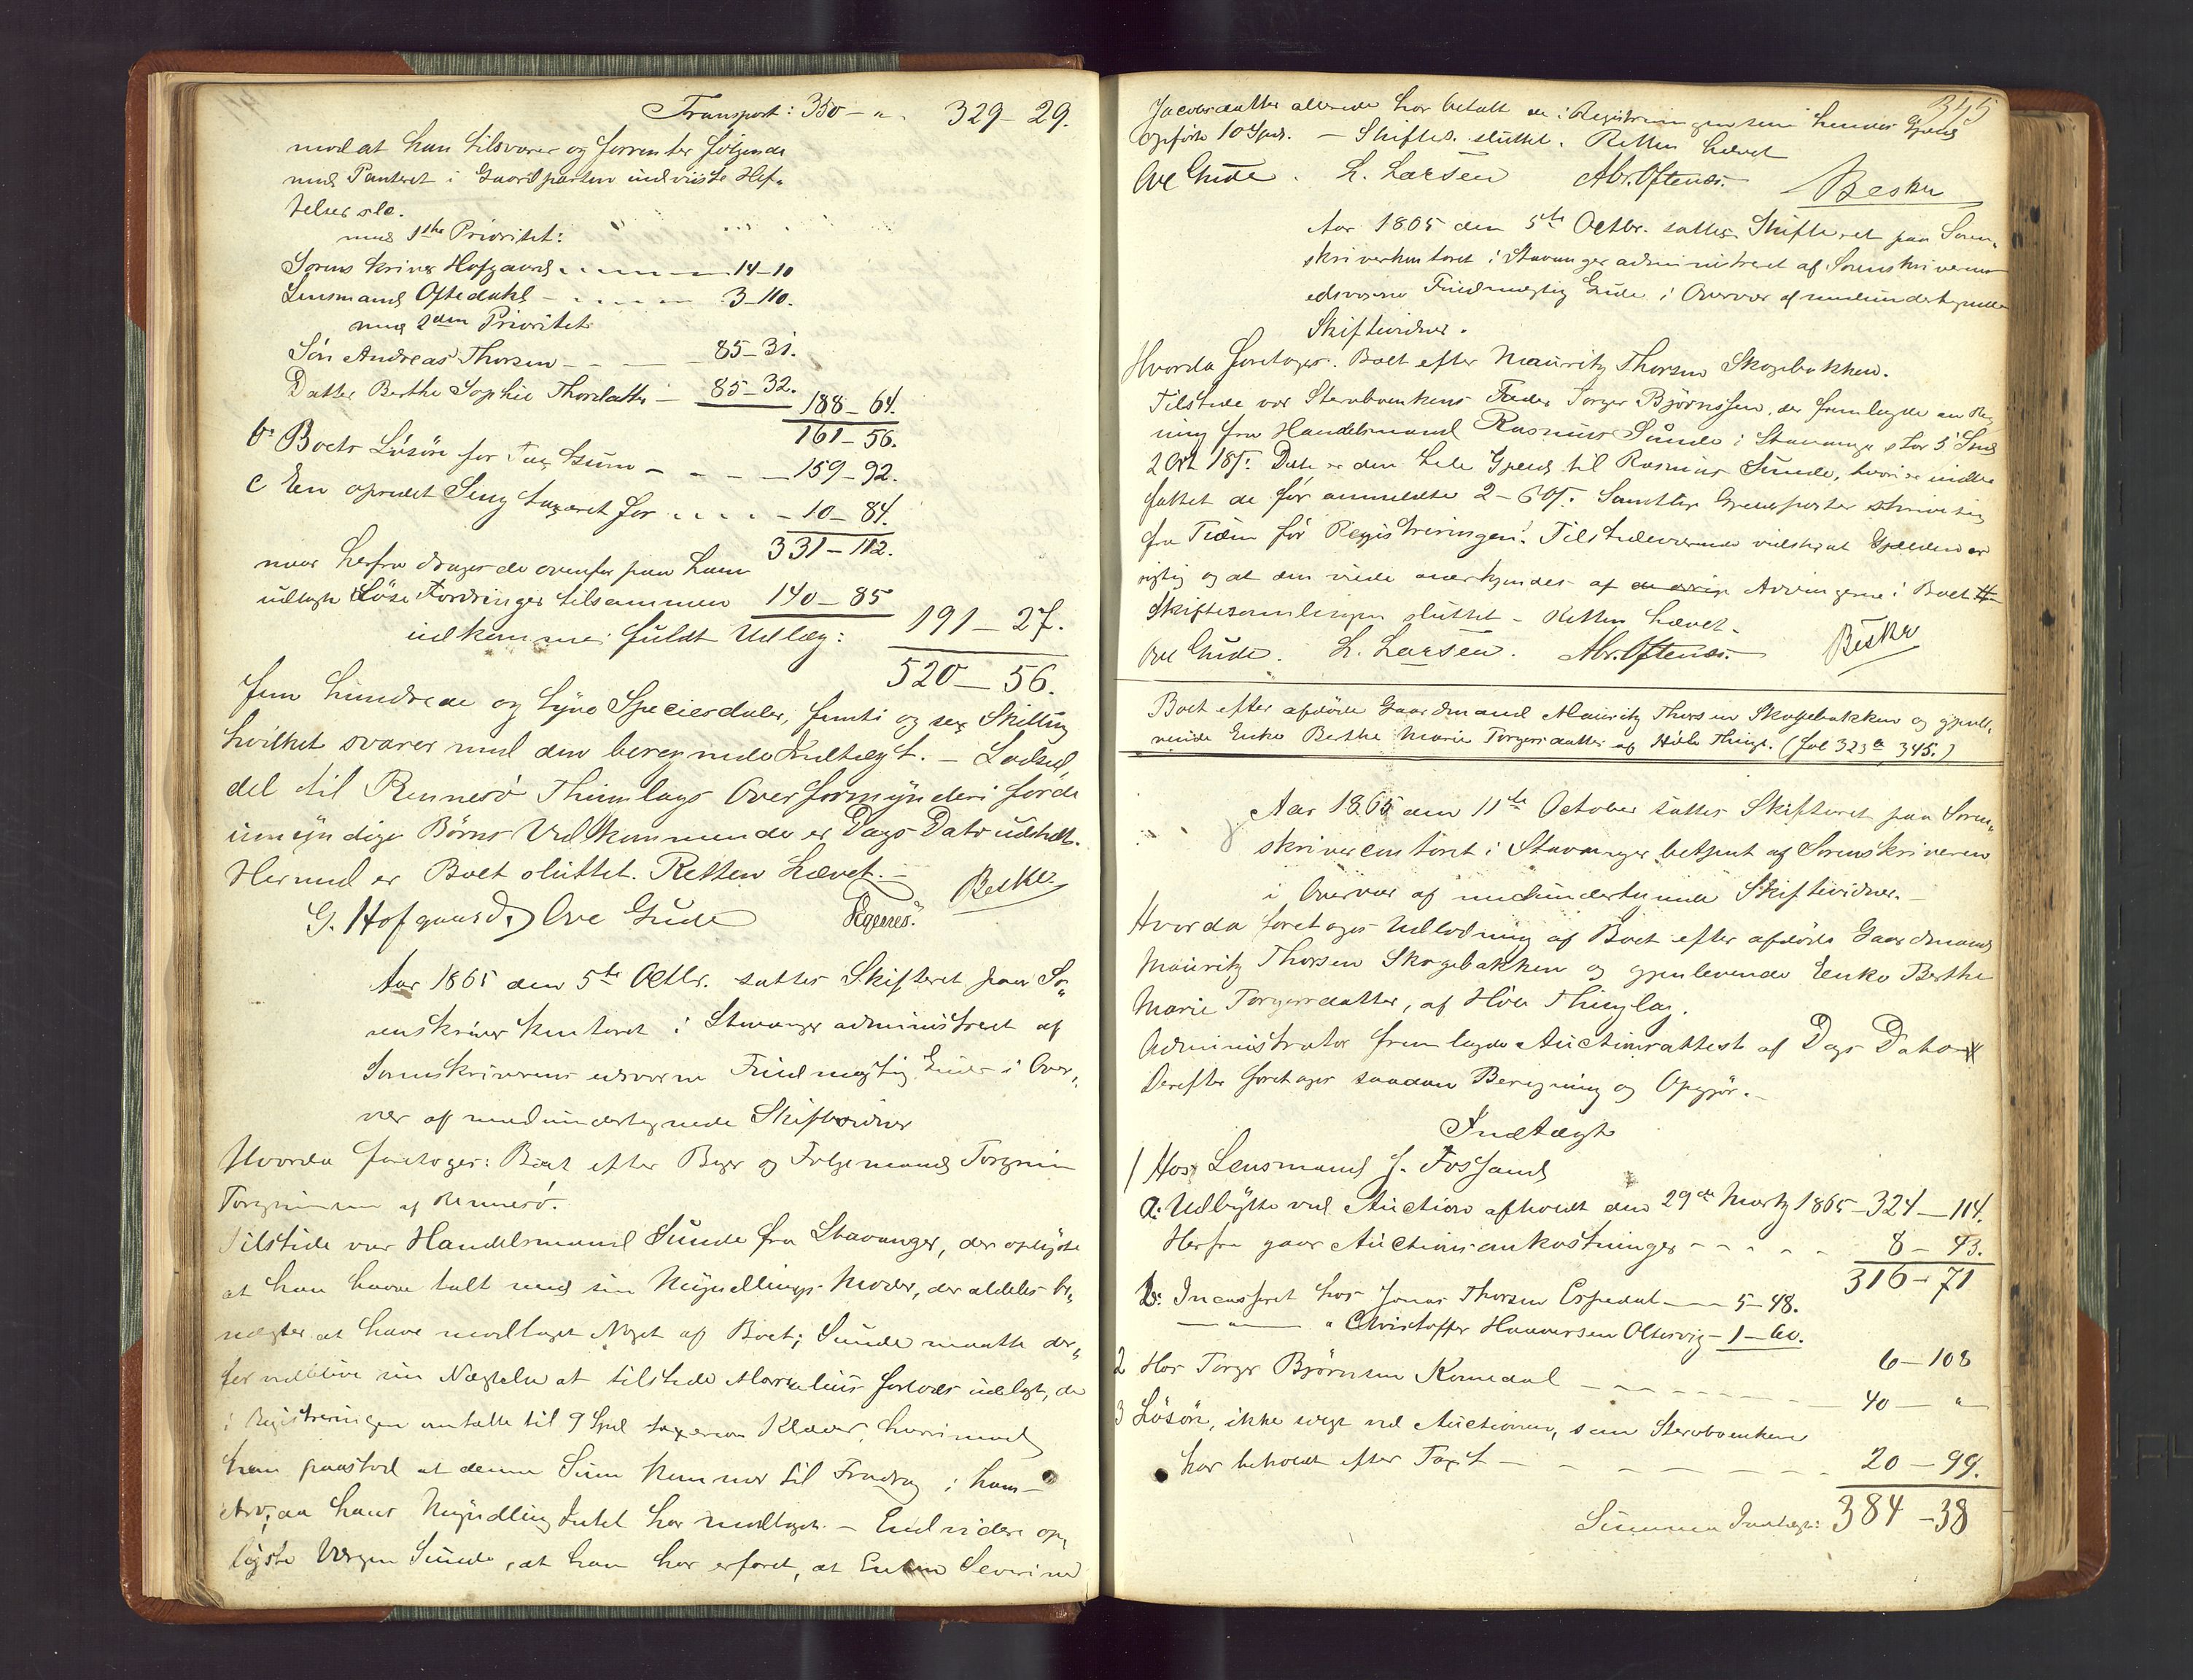 Transport: 350 – " . 329 – 29.
mod at han tilsvarer og forrenter følgende
med Panteret i Gaardparten indviiste Hef-
telser sle.
med 1ste Prioritet:
Sorenskriver Hofgaard . . . . . 14–10
Lensmand Oftedahl – . . . . 3–110.
med 2den Prioritet
Søn Andreas Thorsen – – – 85–31.
Datter Berthe Sophie Thorsdatter – 85–32. 188–64.
161–56.
b: Boets Løsøre for Tax Sum – – – – 159–92.
c En opredet Seng taxeret for . . . . – 10–84.
331–112.
naar herfra drages de ovenfor paa ham
udlagte Løse Fordringer tilsammen 140–85
udkommer fuldt Udlæg: 191–27.
520–56.
fem hundrede og tyve Speciesdaler, femti og sex Skilling
hvilket svarer med den beregnede Indtægt. – Lodsed-
del til Rennesø Thinglags Overformynderi for de
umyndige Børns Vedkommende er Dags Dato udstedt.
Hermed er Boet sluttet. Retten hævet. –
G. Hofgaard. Ove Gude Egenes. Beske
Aar 1865 den 5te Octbr. sattes Skifteret paa So-
renskriverkontoret i Stavanger administreret af
Sorenskriverens edsvorne Fuldmægtig Gude i Over-
vær af medundertegnede Skiftevidner
Hvorda foretoges: Boet efter Bygs og Følgemand Torgrim
Torgrimsen af Rennesø.
Tilstede var Handelsmand Sunde fra Stavanger, der oplyste
at han havde talt med sin Myndlings Moder, der aldeles be-
nægter at have modtaget Noget af Boet; Sunde maatte der-
for vedblive sin Nægtelse at tilstede forlods udlagt, de
i Registreringen omtalte til 9 Spd taxerede Klæder, hvorimod
han paastod at denne Sum kommer til Fradrag i hans
Arv, da hans Myndling Intet har modtaget. – Endvidere op-
lyste Værgen Sunde, at han har erfaret, at Enken Severine
345
Jacobsdatter allerede har betalt de i Registreringen som hendes Gjæld
opførte 10 Spd. – Skiftes. sluttet. Retten hævet
Ove Gude. L. Larsen Abr. Oftenæs. Beske
Aar 1865 den 5te Octbr. sattes Skifteret paa Soren-
skriverkontoret i Stavanger administreret af Sorenskriverens
edsvorne Fuldmægtig Gude i Overvær af medundertegnede
Skiftevidner.
Hvorda foretoges. Boet efter Mauritz Thorsen Skogebakken.
Tilstede var Sterboenkens Fader Torger Bjørnssen, der fremlagde en Reg-
ning fra Handelsmand Rasmus Sunde i Stavanger stor 5 Spd
2 Ort 18 ß. Dette er den hele Gjæld til Rasmus Sunde, hvori er indbe-
fattet de før anmeldte 2–60ß. Samtlige Gjeldsposter skrive sig
fra Tiden før Registreringen. Tilstedeværende vidste at Gjælden er
rigtig og at den vilde anerkjendes af de øvrige Arvingerne i Boet
Skiftesamlingen sluttet – Retten hævet –
Ove Gude. L. Larsen. Abr. Oftenæs. – Beske
Boet efter afdøde Gaardmand Mauritz Thorsen Skogebakken og gjenle-
vende Enke Berthe Marie Torgersdatter af Høle Thingl. (fol 323a, 345.)
Aar 1865 den 11te October sattes Skifteret paa Soren-
skrivercontoret i Stavanger betjent af Sorenskriveren
i Overvær af medundertegnede Skiftevidner. –
Hvorda foretoges Udlodning af Boet efter afdøde Gaardmand
Mauritz Thorsen Skogebakken og gjenlevende Enke Berthe
Marie Torgersdatter, af Høle Thinglag.
Administrator fremlagde Auctionsattest af Dags Dato
Derefter foretoges saadan Beregning og Opgjør. –
Indtægt
1 Hos Lensmand J. Fossand
a: Udbytte ved Auction afholdt den 29de Martz 1865 – 324–114.
Herfra gaar Auctionsomkostninger – – – – – 8–43.
316–71
b: Incasseret hos Jonas Thorsen Espedal – – 5–48.
– " – " Christoffer Haaversen Oltesvig – 1–60.
6–108
2 Hos Torger Bjørnsen Komedal – – – – – – 40 – "
3 Løsøre, ikke solgt ved Auctionen, som Sterboenken
har beholdt efter Taxt – – – – – – – . 20–99.
Summa Indtægt: 384–38